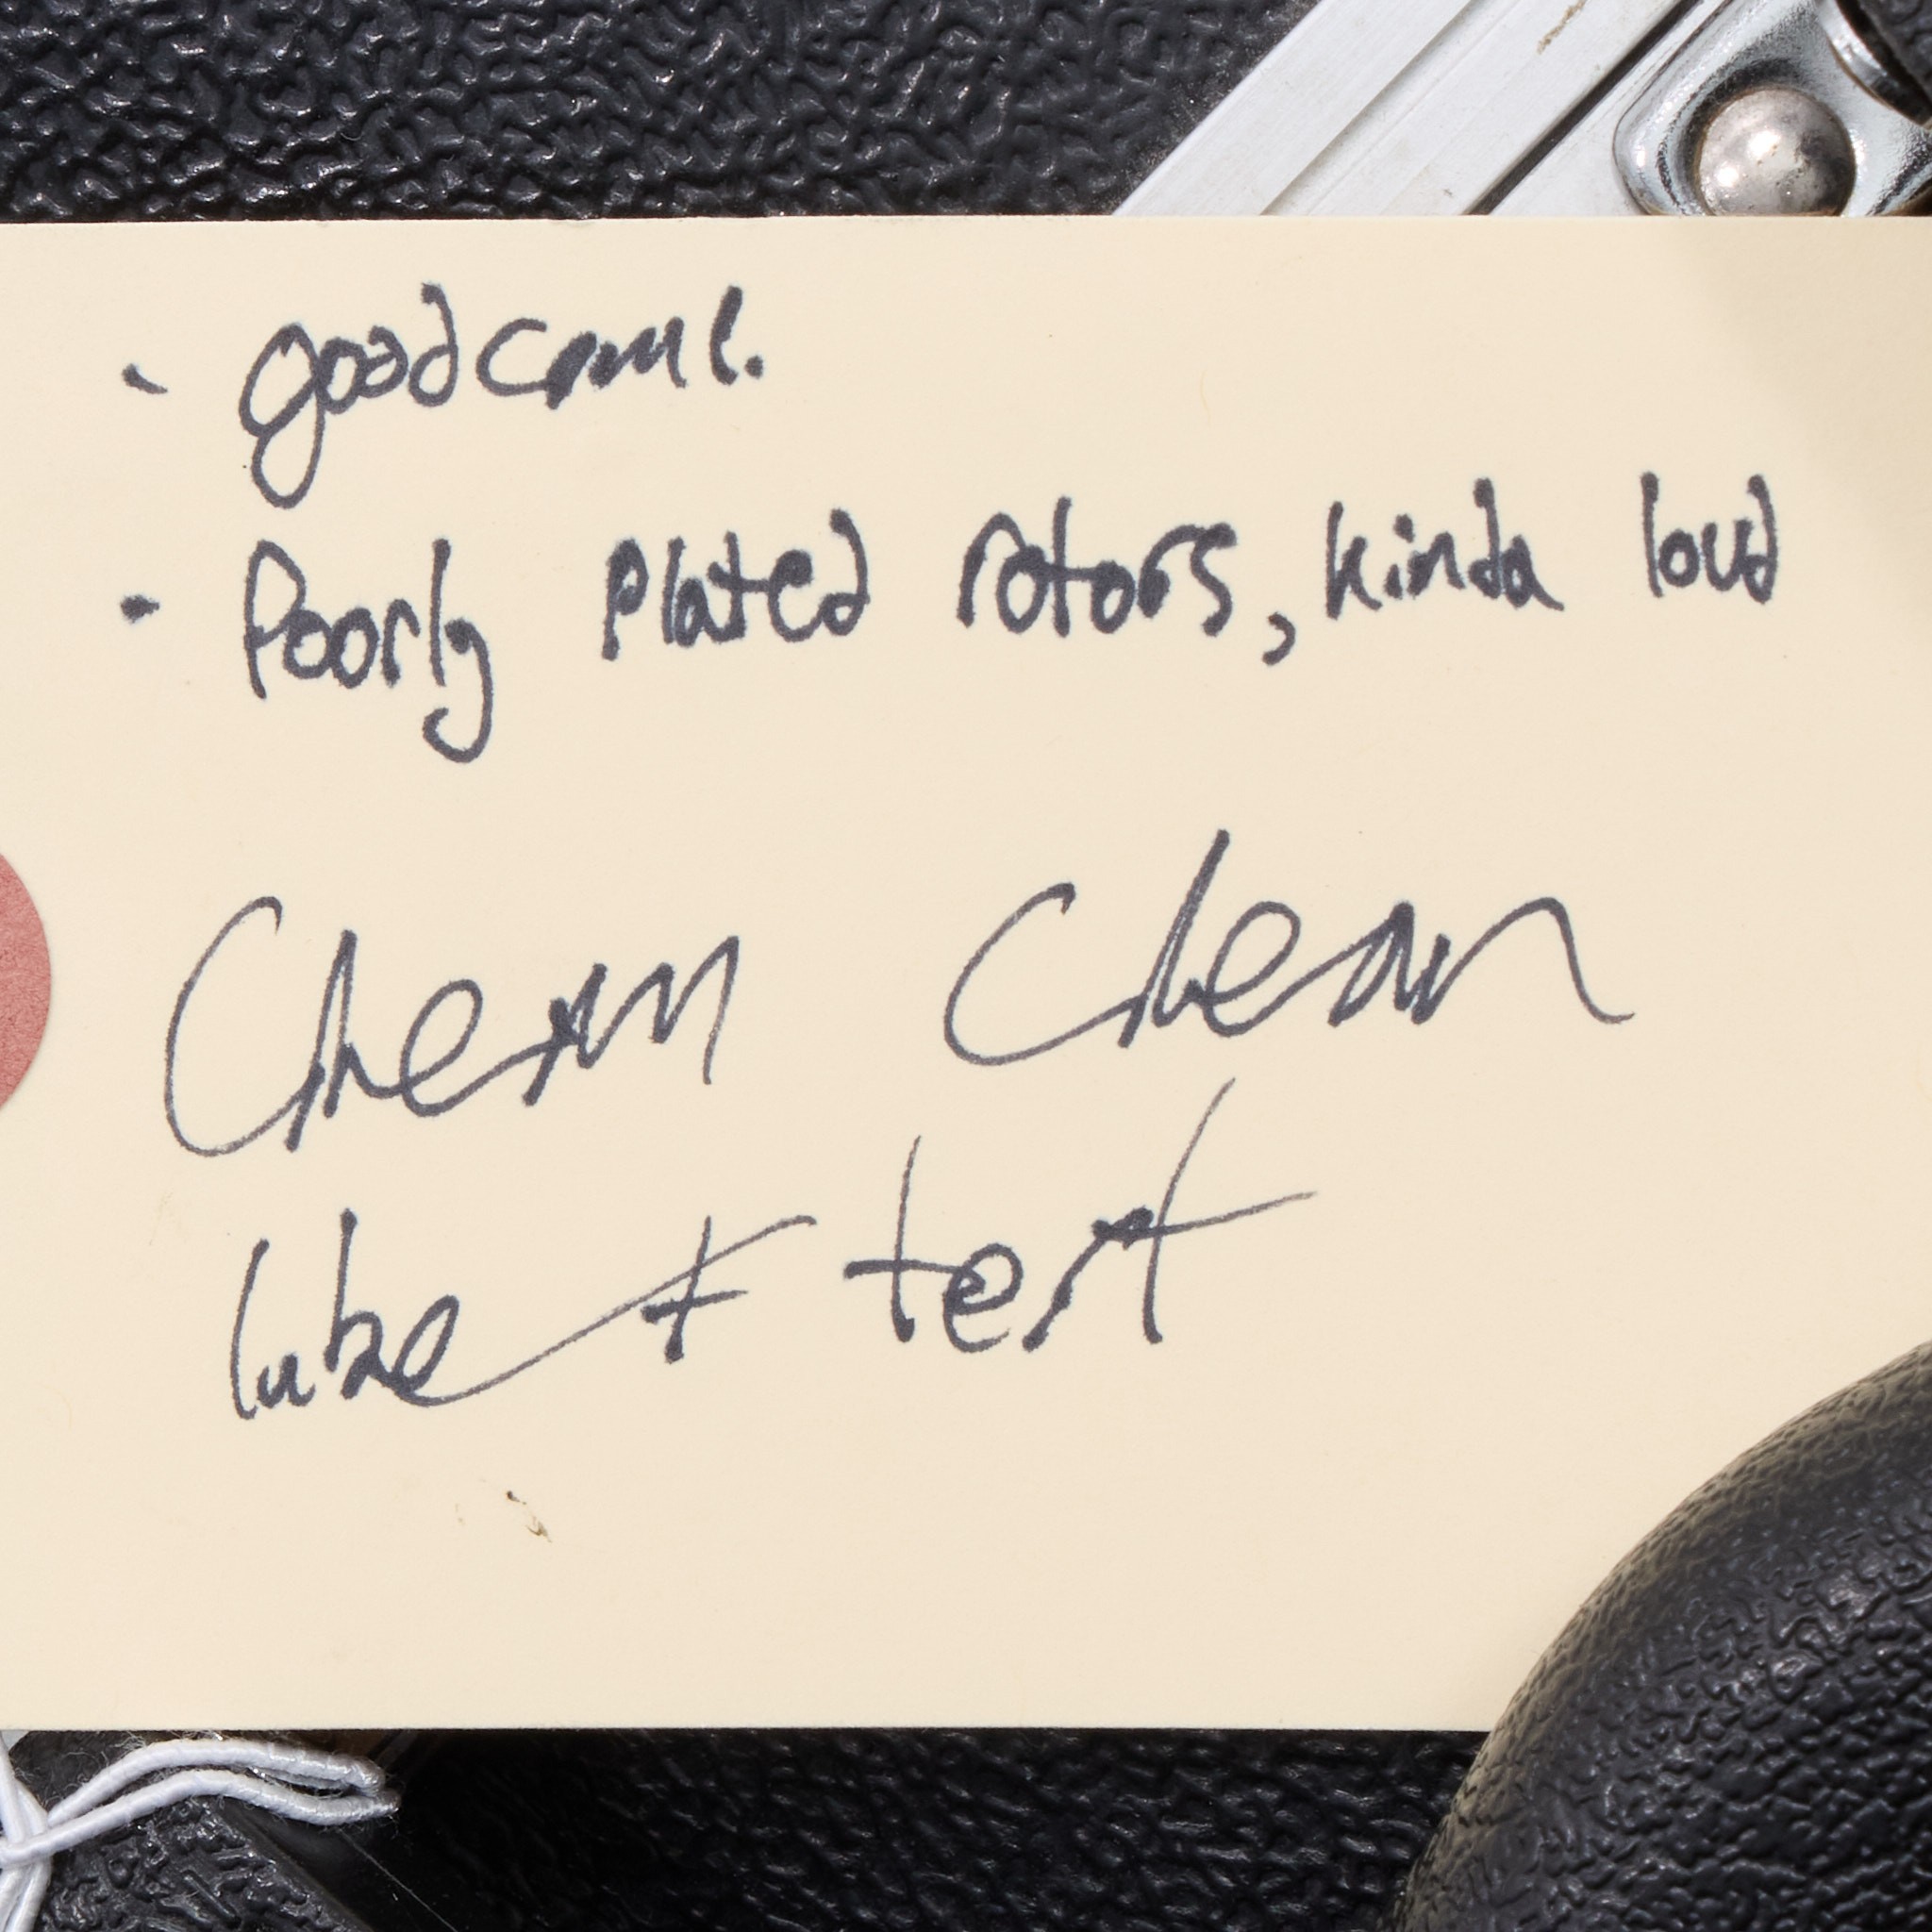 - good comp.
- Poorly plated rotors, kinda loud
Chem Clean
lube + test